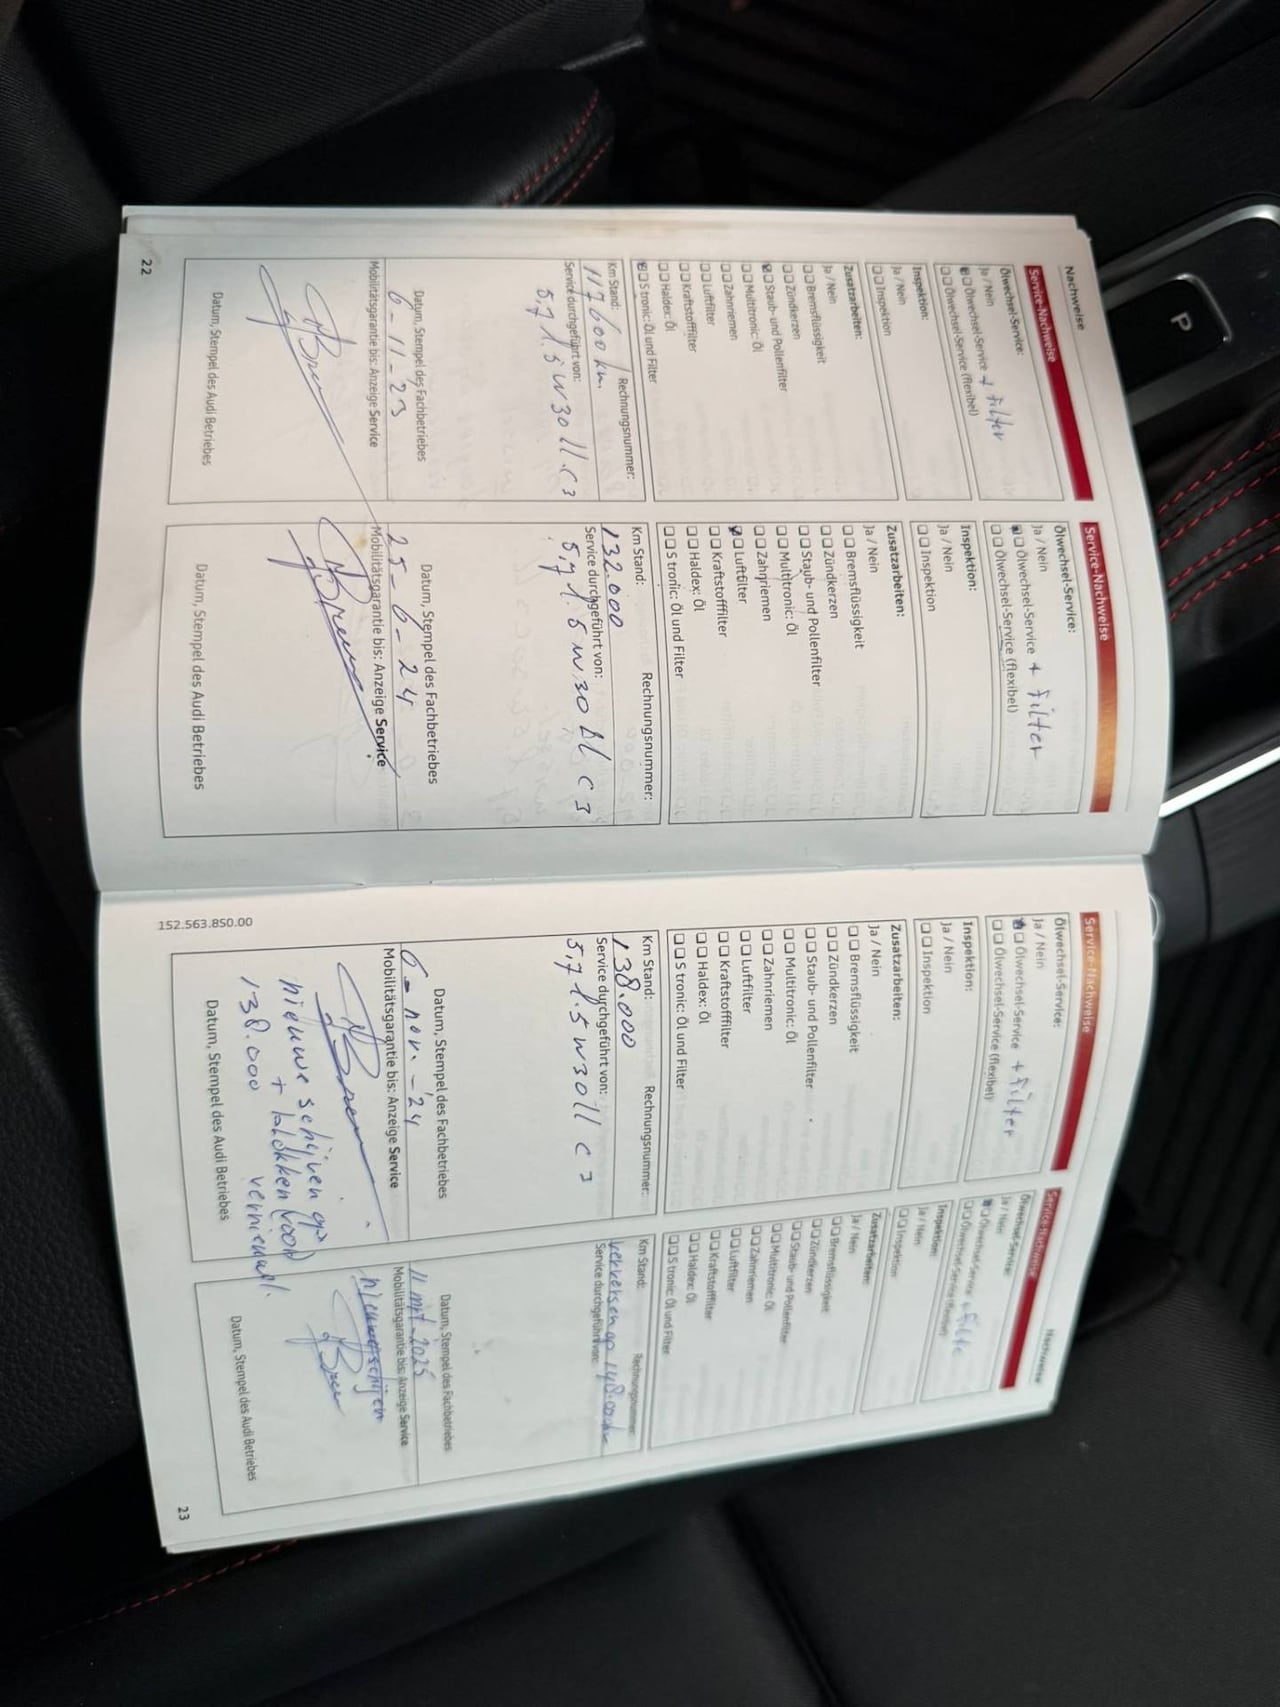 Nachweise
Service-Nachweise
Ölwechsel-Service:
Ja / Nein
Ölwechsel-Service + filter
Ölwechsel-Service (flexibel)
Inspektion:
Ja / Nein
Inspektion
Zusatzarbeiten:
Ja / Nein
Bremsflüssigkeit
Zündkerzen
Staub- und Pollenfilter
Multitronic: Öl
Zahnriemen
Luftfilter
Kraftstofffilter
Haldex: Öl
S tronic: Öl und Filter
Km Stand: Rechnungsnummer:
117600 km.
Service durchgeführt von:
5,7 l. 5w30 ll. c3
Datum, Stempel des Fachbetriebes
6-11-23
Mobilitätsgarantie bis: Anzeige Service
Datum, Stempel des Audi Betriebes
22
Service-Nachweise
Ölwechsel-Service:
Ja / Nein
Ölwechsel-Service + filter
Ölwechsel-Service (flexibel)
Inspektion:
Ja / Nein
Inspektion
Zusatzarbeiten:
Ja / Nein
Bremsflüssigkeit
Zündkerzen
Staub- und Pollenfilter
Multitronic: Öl
Zahnriemen
Luftfilter
Kraftstofffilter
Haldex: Öl
S tronic: Öl und Filter
Km Stand: Rechnungsnummer:
132.000
Service durchgeführt von:
5,7 l. 5w30 ll c3
Datum, Stempel des Fachbetriebes
25-6-24
Mobilitätsgarantie bis: Anzeige Service
Datum, Stempel des Audi Betriebes
Service-Nachweise
Ölwechsel-Service:
Ja / Nein
Ölwechsel-Service + filter
Ölwechsel-Service (flexibel)
Inspektion:
Ja / Nein
Inspektion
Zusatzarbeiten:
Ja / Nein
Bremsflüssigkeit
Zündkerzen
Staub- und Pollenfilter
Multitronic: Öl
Zahnriemen
Luftfilter
Kraftstofffilter
Haldex: Öl
S tronic: Öl und Filter
Km Stand: Rechnungsnummer:
138.000
Service durchgeführt von:
5,7 l. 5w30ll c3
Datum, Stempel des Fachbetriebes
6-nov.-'24
Mobilitätsgarantie bis: Anzeige Service
nieuwe schijven op
+ blokken voor
138.000 vernieuwd.
Datum, Stempel des Audi Betriebes
152.563.850.00
Nachweise
Service-Nachweise
Ölwechsel-Service:
Ja / Nein
Ölwechsel-Service + filte
Ölwechsel-Service (flexibel)
Inspektion:
Ja / Nein
Inspektion
Zusatzarbeiten:
Ja / Nein
Bremsflüssigkeit
Zündkerzen
Staub- und Pollenfilter
Multitronic: Öl
Zahnriemen
Luftfilter
Kraftstofffilter
Haldex: Öl
S tronic: Öl und Filter
Km Stand: Rechnungsnummer:
verversen op 148.00
Service durchgeführt von:
Datum, Stempel des Fachbetriebes
11 mrt-2025
Mobilitätsgarantie bis: Anzeige Service
nieuwe schijven
Datum, Stempel des Audi Betriebes
23
P